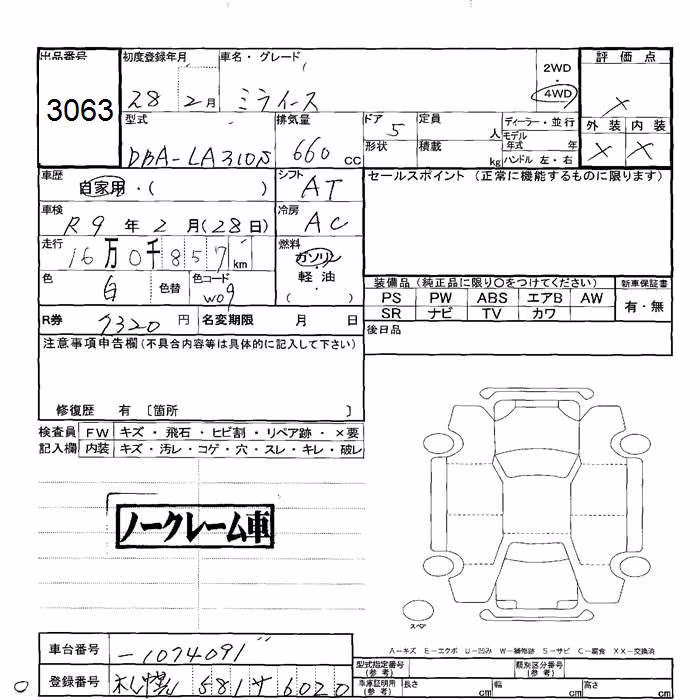 出品番号 初度登録年月 車名・グレード 評価点
3063 28 2月 ミライース 2WD ・ 4WD ×
型式 排気量 ドア 定員 ディーラー・並行 外装 内装
DBA-LA310S 660cc 5 人 モデル年式 年 × ×
形状 積載 kg ハンドル 左・右
車歴 自家用・( ) シフト AT セールスポイント (正常に機能するものに限ります)
車検 R9年2月(28日) 冷房 AC
走行 16万0千857km 燃料 ガソリン・軽油・( )
色 白 色替 色コード W09
装備品 (純正品に限り〇をつけてください) 新車保証書
PS PW ABS エアB AW 有・無
SR ナビ TV カワ
R券 7320円 名変期限 月 日 後日品
注意事項申告欄(不具合内容等は具体的に記入して下さい)
修復歴 有 〔箇所 〕
検査員 FW キズ・飛石・ヒビ割・リペア跡・×要
記入欄 内装 キズ・汚レ・コゲ・穴・スレ・キレ・破レ
ノークレーム車
スペア
A-キズ E-エクボ U-凹み W-補修跡 S-サビ C-腐食 XX-交換済
車台番号 -1074091
型式指定番号(参考) 類別区分番号(参考)
登録番号 札幌 581 サ 6020
車庫証明用(参考) 長さ cm 幅 cm 高さ cm